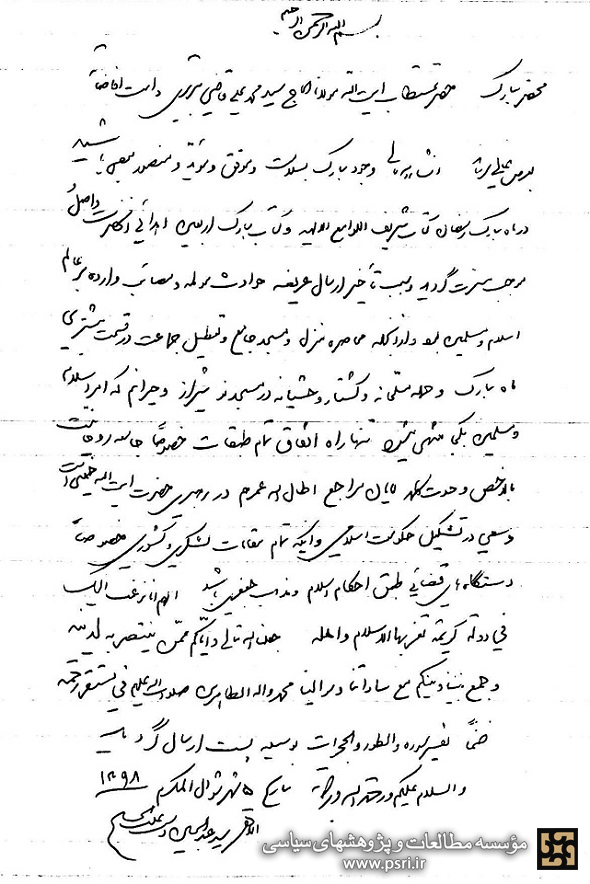 بسم الله الرحمن الرحیم
محضر مبارک حضرت مستطاب آیت الله مولانا الحاج سید محمد علی قاضی تبریزی دامت افاضاته
بعرض عالی میرساند انشاءالله تعالی وجود مبارک بسلامت و موفق و مؤید و منصور میباشید
در ماه مبارک رمضان کتاب شریف اللوامع الالهیه و کتاب مبارک اربعین اهدائی آنحضرت واصل
موجب مسرت گردید و سبب تأخیر ارسال عریضه حوادث مولمه و مصائب وارده بر عالم
اسلام و مسلمین بود و از آنجمله محاصره منزل و مسجد جامع و تعطیل جماعت در قسمت بیشتری
ماه مبارک و حمله مسلحانه و کشتار وحشیانه در مسجد نو شیراز و حیرانم که امر اسلام
و مسلمین بکجا منتهی میشود تنها راه اتفاق تمام طبقات خصوصاً جامعه روحانیت
بالاخص وحدت کلمه مراجع اطال الله عمرهم در رهبری حضرت آیت الله خمینی است
و سعی در تشکیل حکومت اسلامی و اینکه تمام مقامات لشکری و کشوری خصوصاً
دستگاه های قضائی طبق احکام اسلام و مذهب جعفری باشد اللهم انا نرغب الیک
فی دولة کریمة تعز بها الاسلام و اهله جعلنا الله تعالی و ایاکم ممن ینتصر به لدینه
و جمع بیننا و بینکم مع ساداتنا و موالینا محمد و اله الطاهرین صلوات الله علیهم فی مستقر رحمته
ضمناً تفسیر سوره والطور و الحجرات بوسیله پست ارسال گردید
والسلام علیکم و رحمة الله و برکاته بتاریخ ۵ شهر شوال المکرم ۱۳۹۸
الاحقر سید عبدالحسین دستغیب
مؤسسه مطالعات و پژوهشهای سیاسی
www.psri.ir